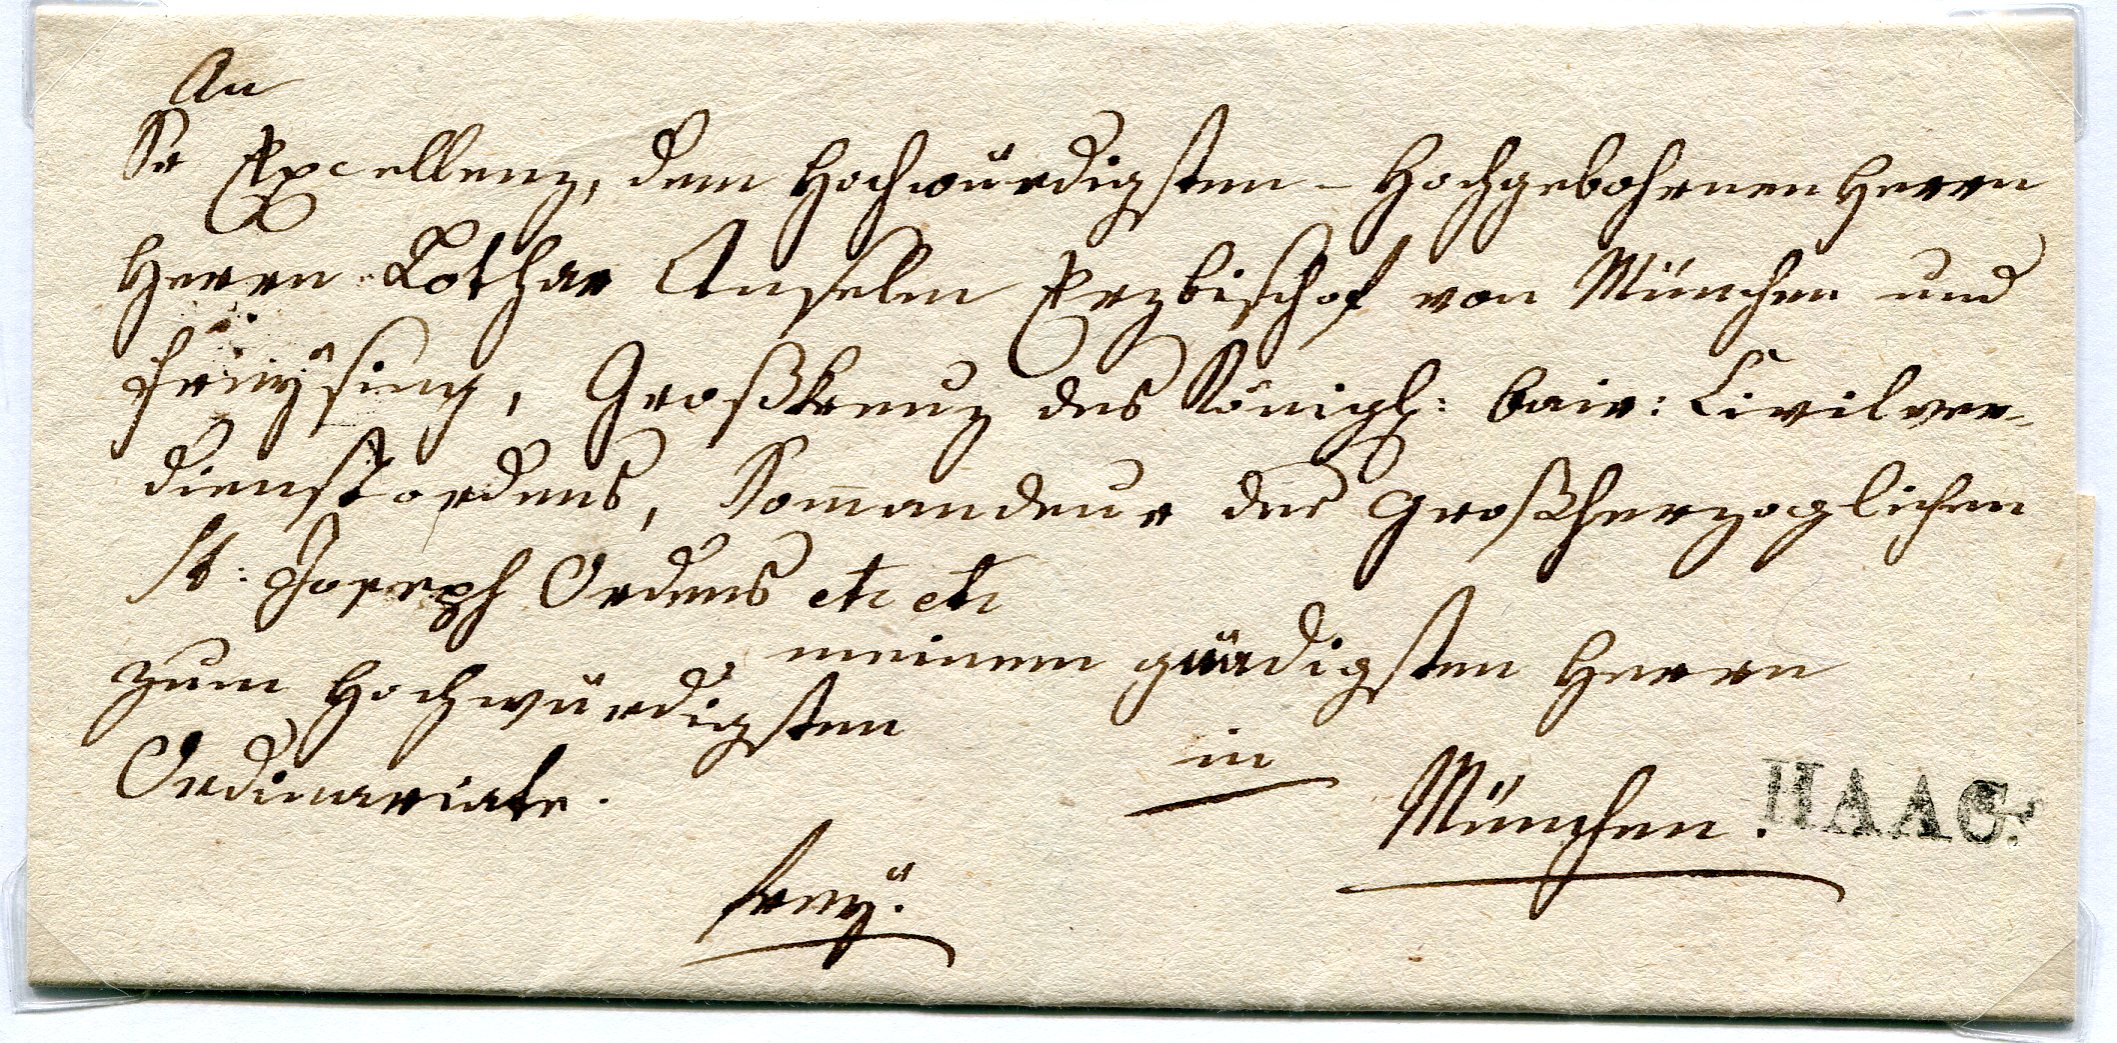 An
Sr Excellenz, dem Hochwürdigsten - Hochgebohrnen Herrn
Herrn Lothar Anselm Erzbischof von München und
Freÿsing, Großkreuz des Königl: bair: Civilver-
dienstordens, Kommandeur des Großherzoglichen
St: Joseph Ordens etc etc
meinem gnädigsten Herrn
zum Hochwürdigsten
Ordinariate.
in
München.
HAAG.
freÿ.